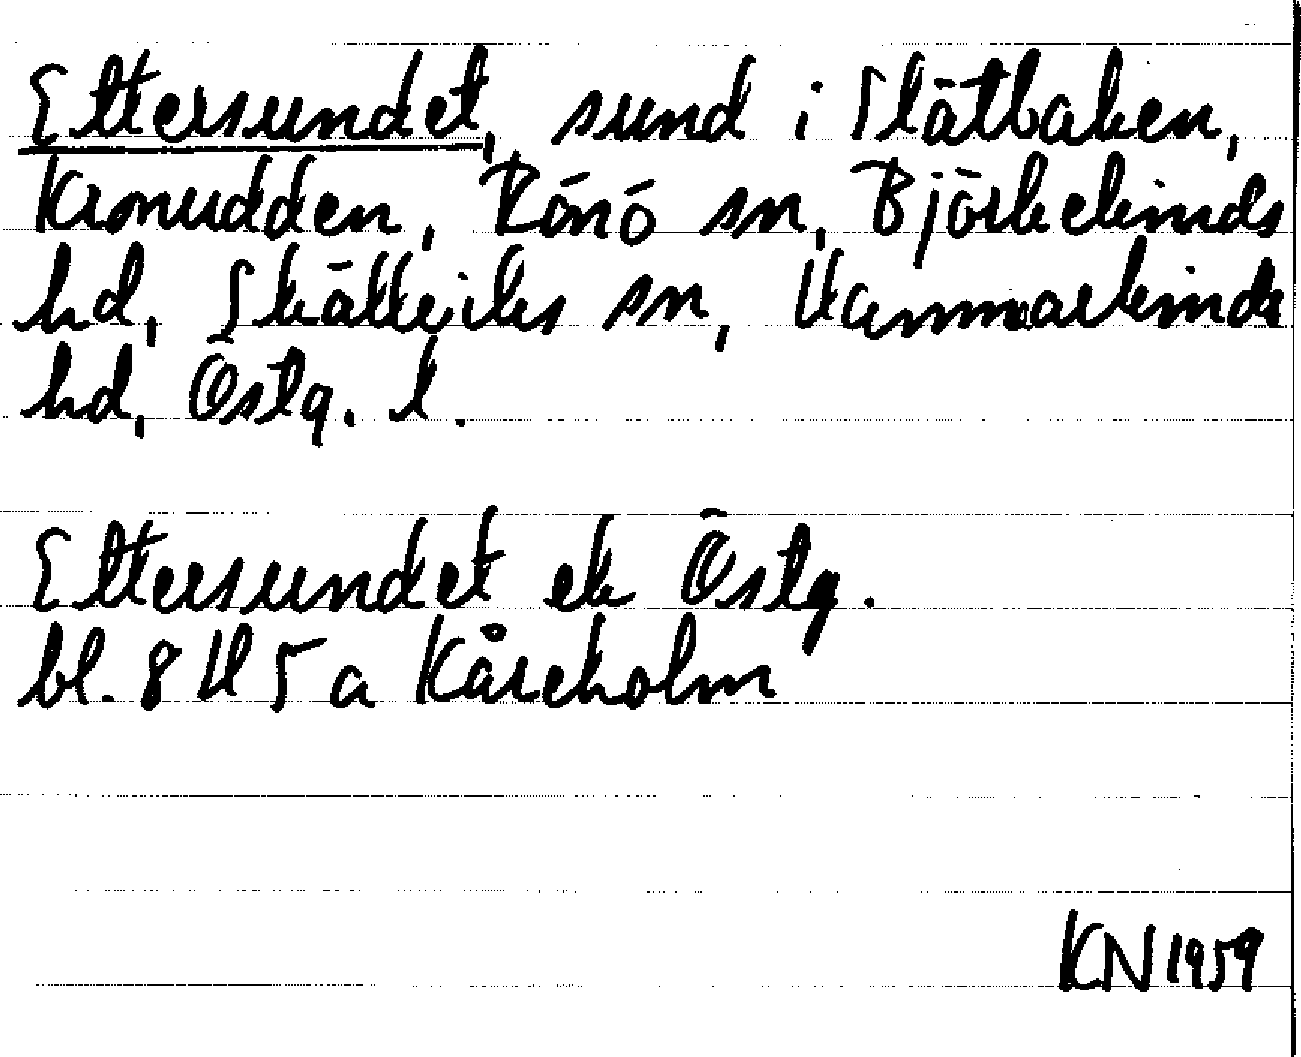 Ettersundet, sund i Slätbaken,
Kronudden, Rönö sn, Björkekinds
hd, Skällviks sn, Hammarkinds
hd, Östg. l.
Ettersundet ek Östg.
bl. 8 H 5 a Kåreholm
KN 1959